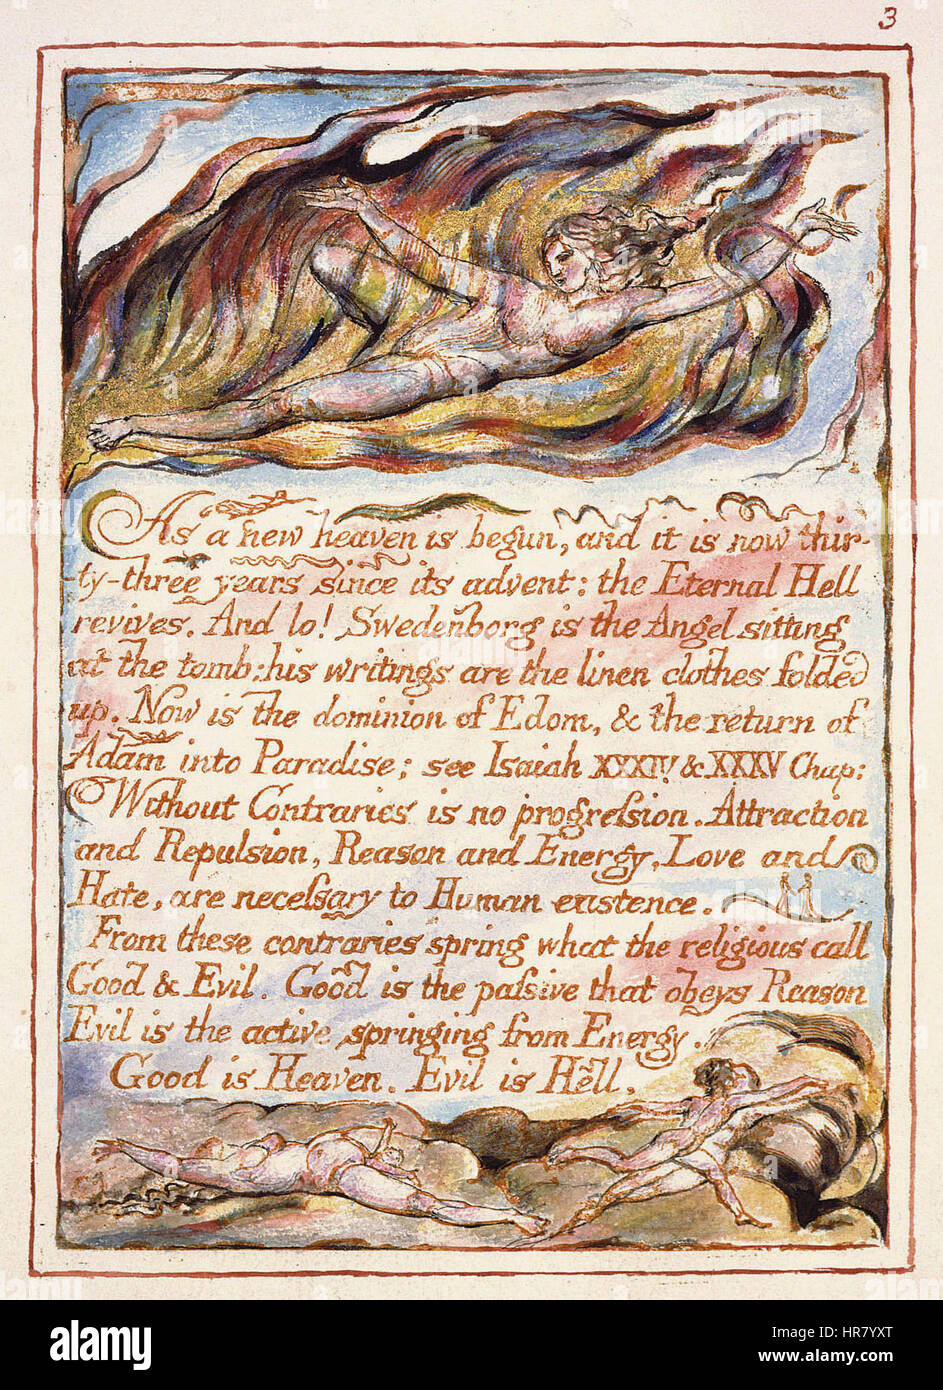 3
As a new heaven is begun, and it is now thir-
-ty-three years since its advent: the Eternal Hell
revives. And lo! Swedenborg is the Angel sitting
at the tomb: his writings are the linen clothes folded
up. Now is the dominion of Edom, & the return of
Adam into Paradise; see Isaiah XXXIV & XXXV Chap:
Without Contraries is no progreſsion. Attraction
and Repulsion, Reason and Energy, Love and
Hate, are neceſsary to Human existence.
From these contraries spring what the religious call
Good & Evil. Good is the paſsive that obeys Reason
Evil is the active springing from Energy.
Good is Heaven. Evil is Hell.
alamy
a
alamy
Image ID: HR7YXT
www.alamy.com